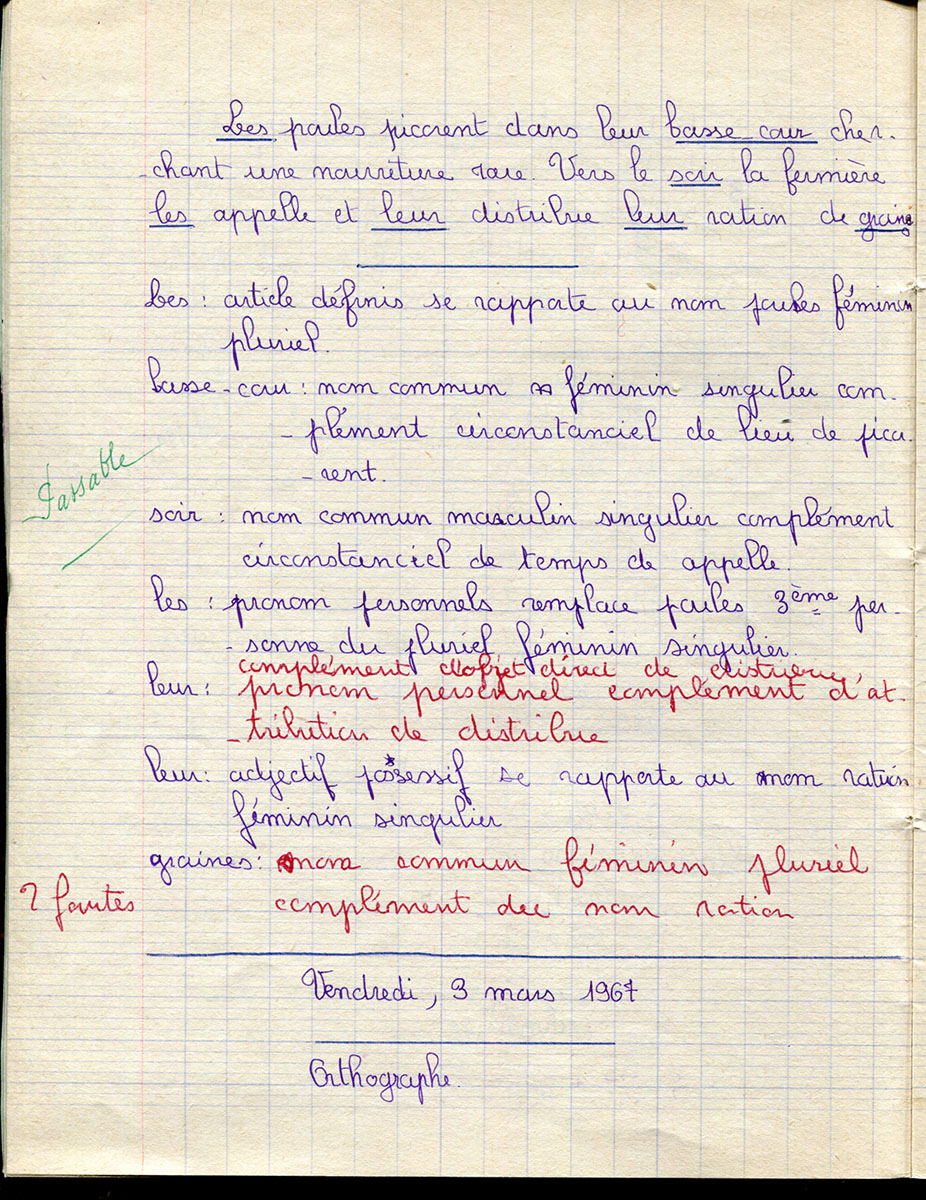 Les poules picorent dans leur basse cour cher-
-chant une nourriture rare. Vers le soir la fermière
les appelle et leur distribue leur ration de graines
Les : article définis se rapporte au nom poules féminin
pluriel.
basse-cour : nom commun féminin singulier com-
-plément circonstanciel de lieu de pico-
-rent.
Passable
soir : nom commun masculin singulier complément
circonstanciel de temps de appelle.
les : pronom personnels remplace poules 3ème per-
-sonne du pluriel féminin singulier.
complément d'objet direct de distribue
leur : pronom personnel complément d'at-
-tribution de distribue
leur : adjectif possessif se rapporte au nom ration
féminin singulier
graines : nom commun féminin pluriel
2 fautes
complément du nom ration
Vendredi, 3 mars 1967
Orthographe.